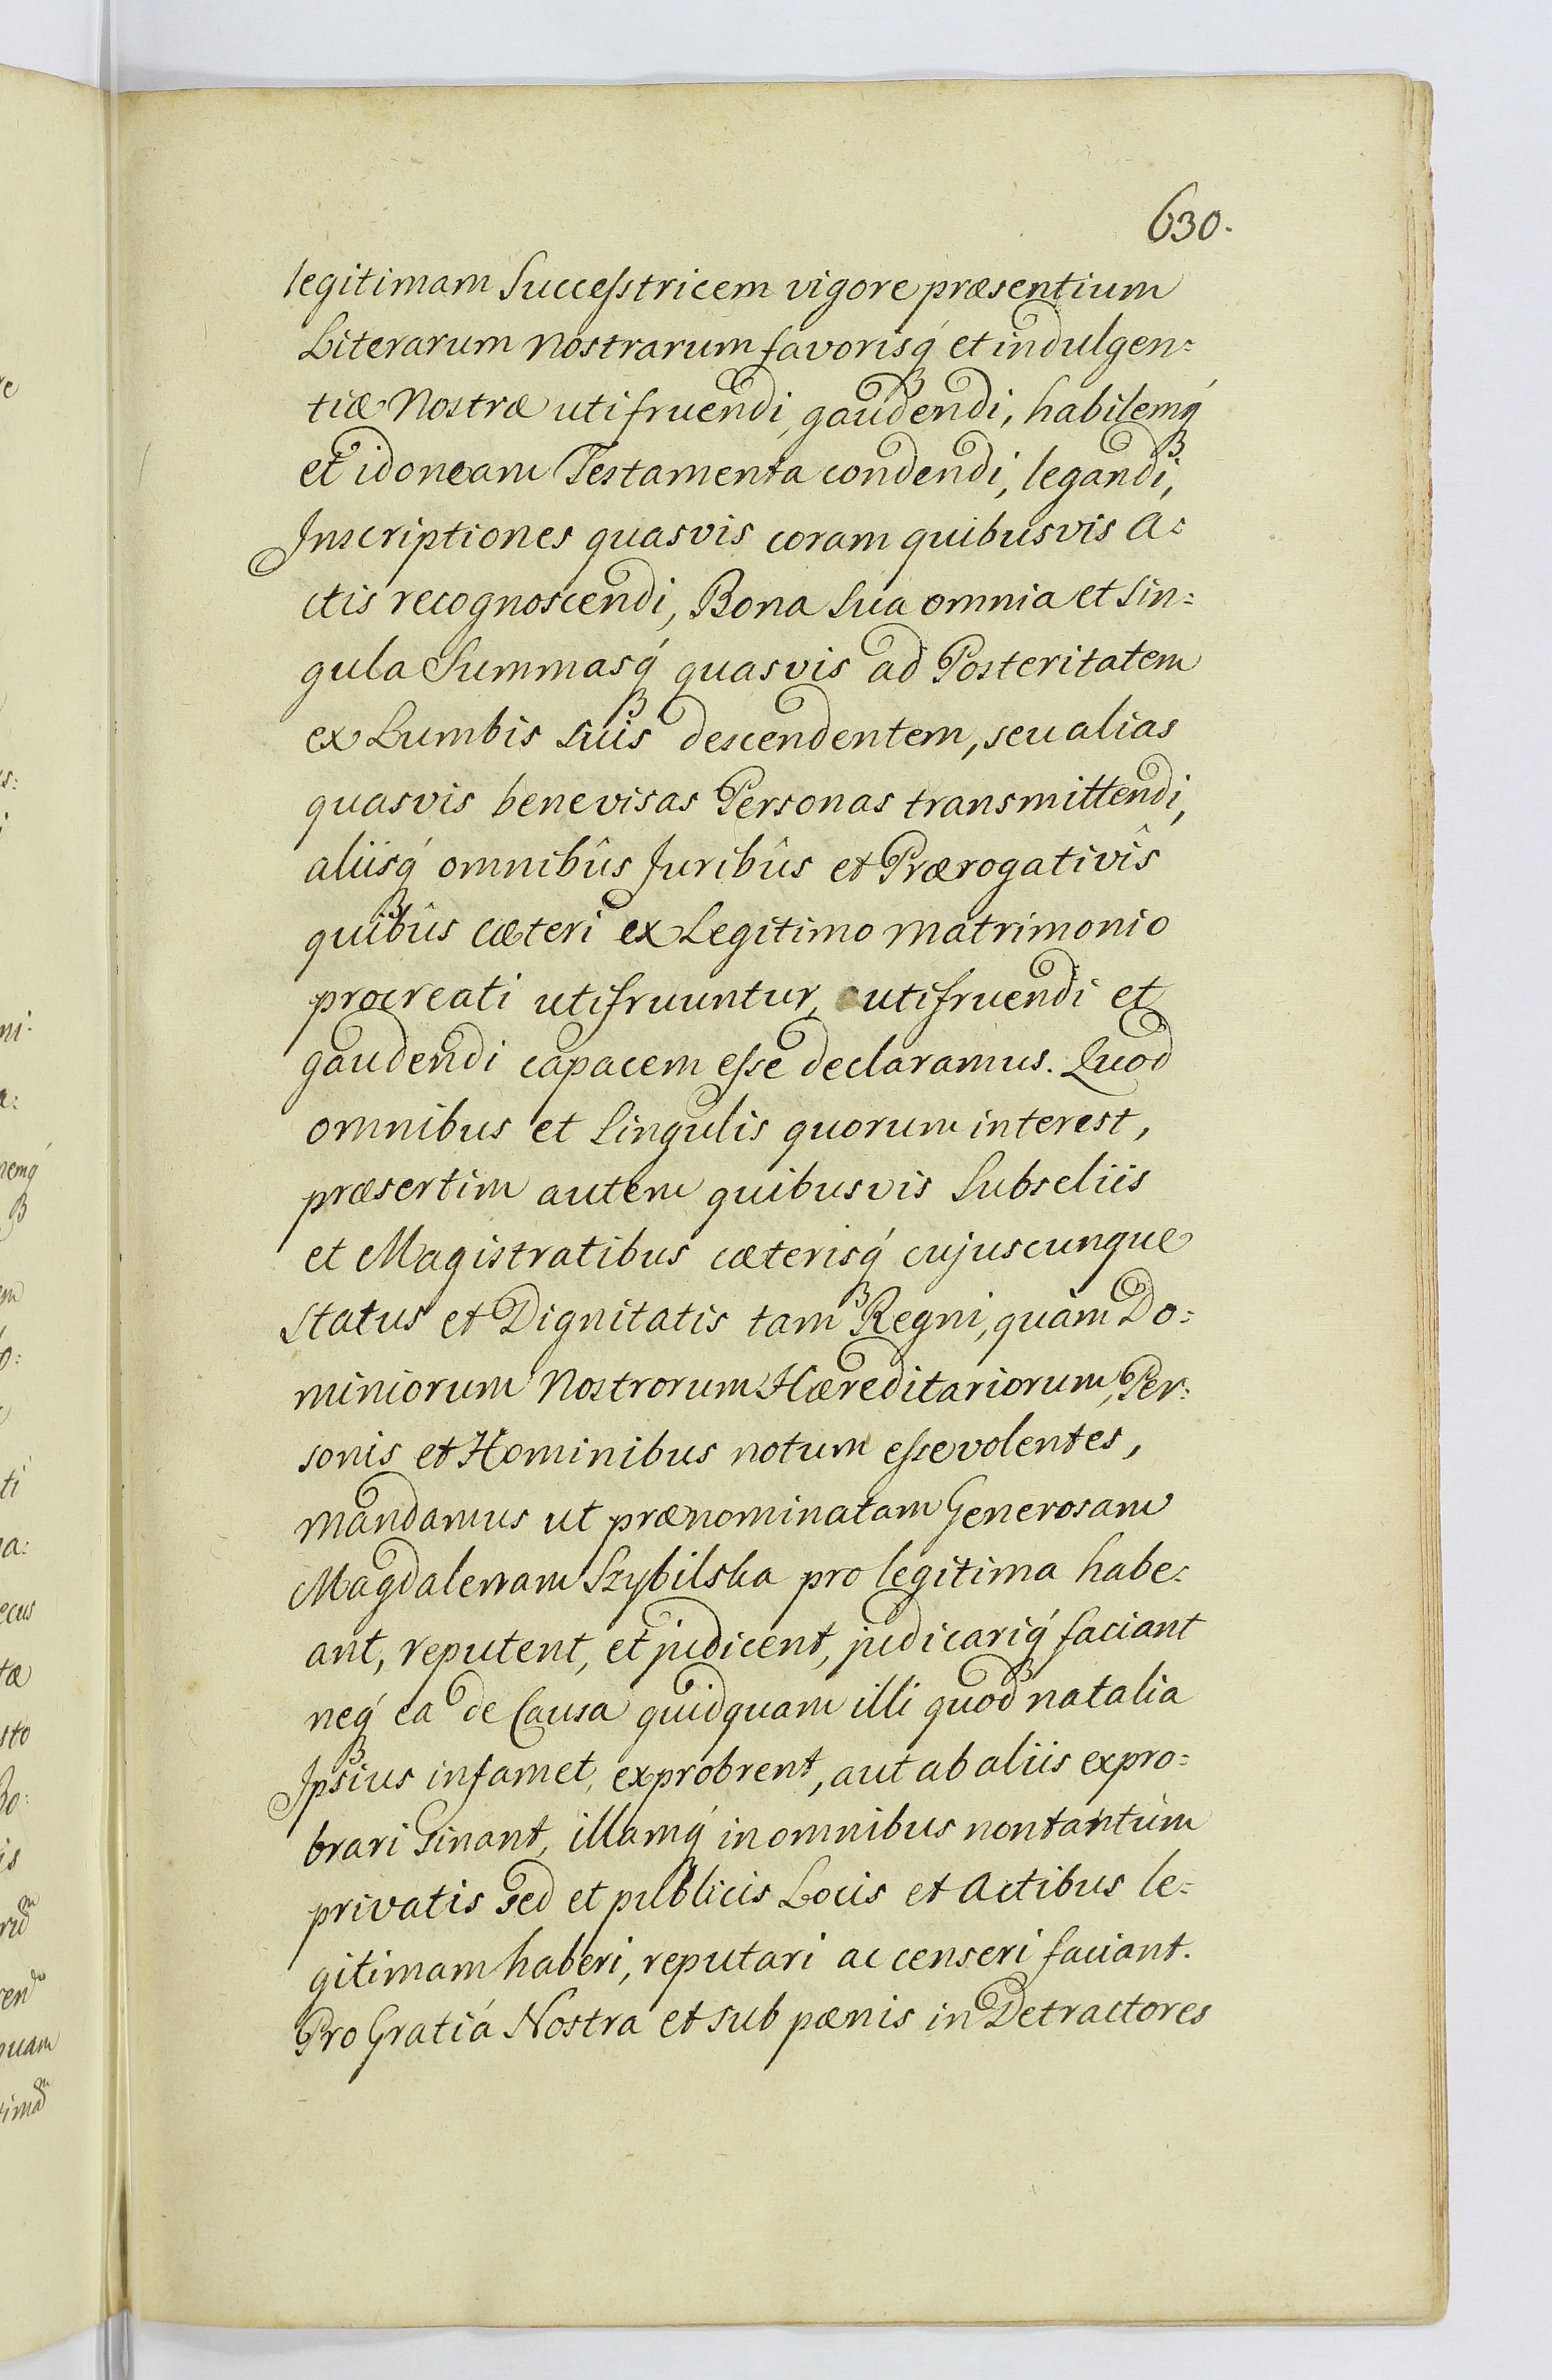 630.
legitimam Successtricem vigore præsentium
Literarum Nostrarum favorisq́ et indulgen=
tiæ Nostræ utifruendi, gaudendi, habilemq́
et idoneam Testamenta condendi, legandi,
Inscriptiones quasvis coram quibusvis A=
ctis recognoscendi, Bona Sua omnia et Sin=
gula Summasq́ quasvis ad Posteritatem
ex Lumbis Suis descendentem, seu alias
quasvis benevisas Personas transmittendi,
aliisq́ omnibûs Juribûs et Prærogativîs
quibûs cæteri ex Legitimo Matrimonio
procreati utifruuntur, utifruendi et
gaudendi capacem esse declaramus. Quod
omnibus et Singulis quorum interest,
præsertim autem quibusvis Subseliis
et Magistratibus cæterisq́ cujuscunque
Status et Dignitatis tam Regni, quàm Do=
miniorum Nostrorum Hæreditariorum, Per=
sonis et Hominibus notum esse volentes,
mandamus ut prænominatam Generosam
Magdalenam Szybilska pro legitima habe=
ant, reputent, et judicent, judicariq́ faciant
neq́ ea de Causa quidquam illi quod natalia
Ipsius infamet, exprobrent, aut ab aliis expro=
brari Sinant, illamq́ in omnibus non tantùm
privatis sed et publicis Locis et Actibus le=
gitimam haberi, reputari ac censeri faciant.
Pro Gratiá Nostra et sub pænis in Detractores